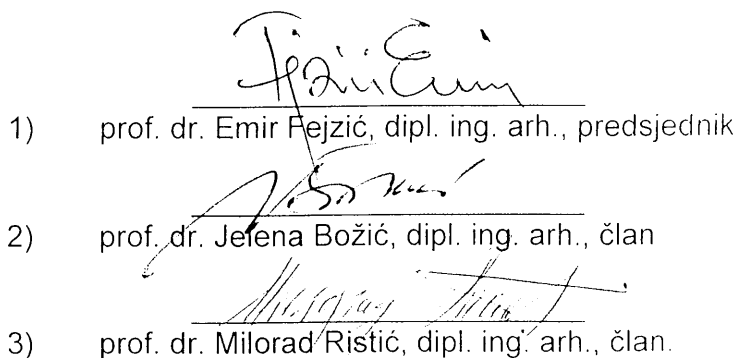 Fejzić Emir
1) prof. dr. Emir Fejzić, dipl. ing. arh., predsjednik
2) prof. dr. Jelena Božić, dipl. ing. arh., član
3) prof. dr. Milorad Ristić, dipl. ing. arh., član.